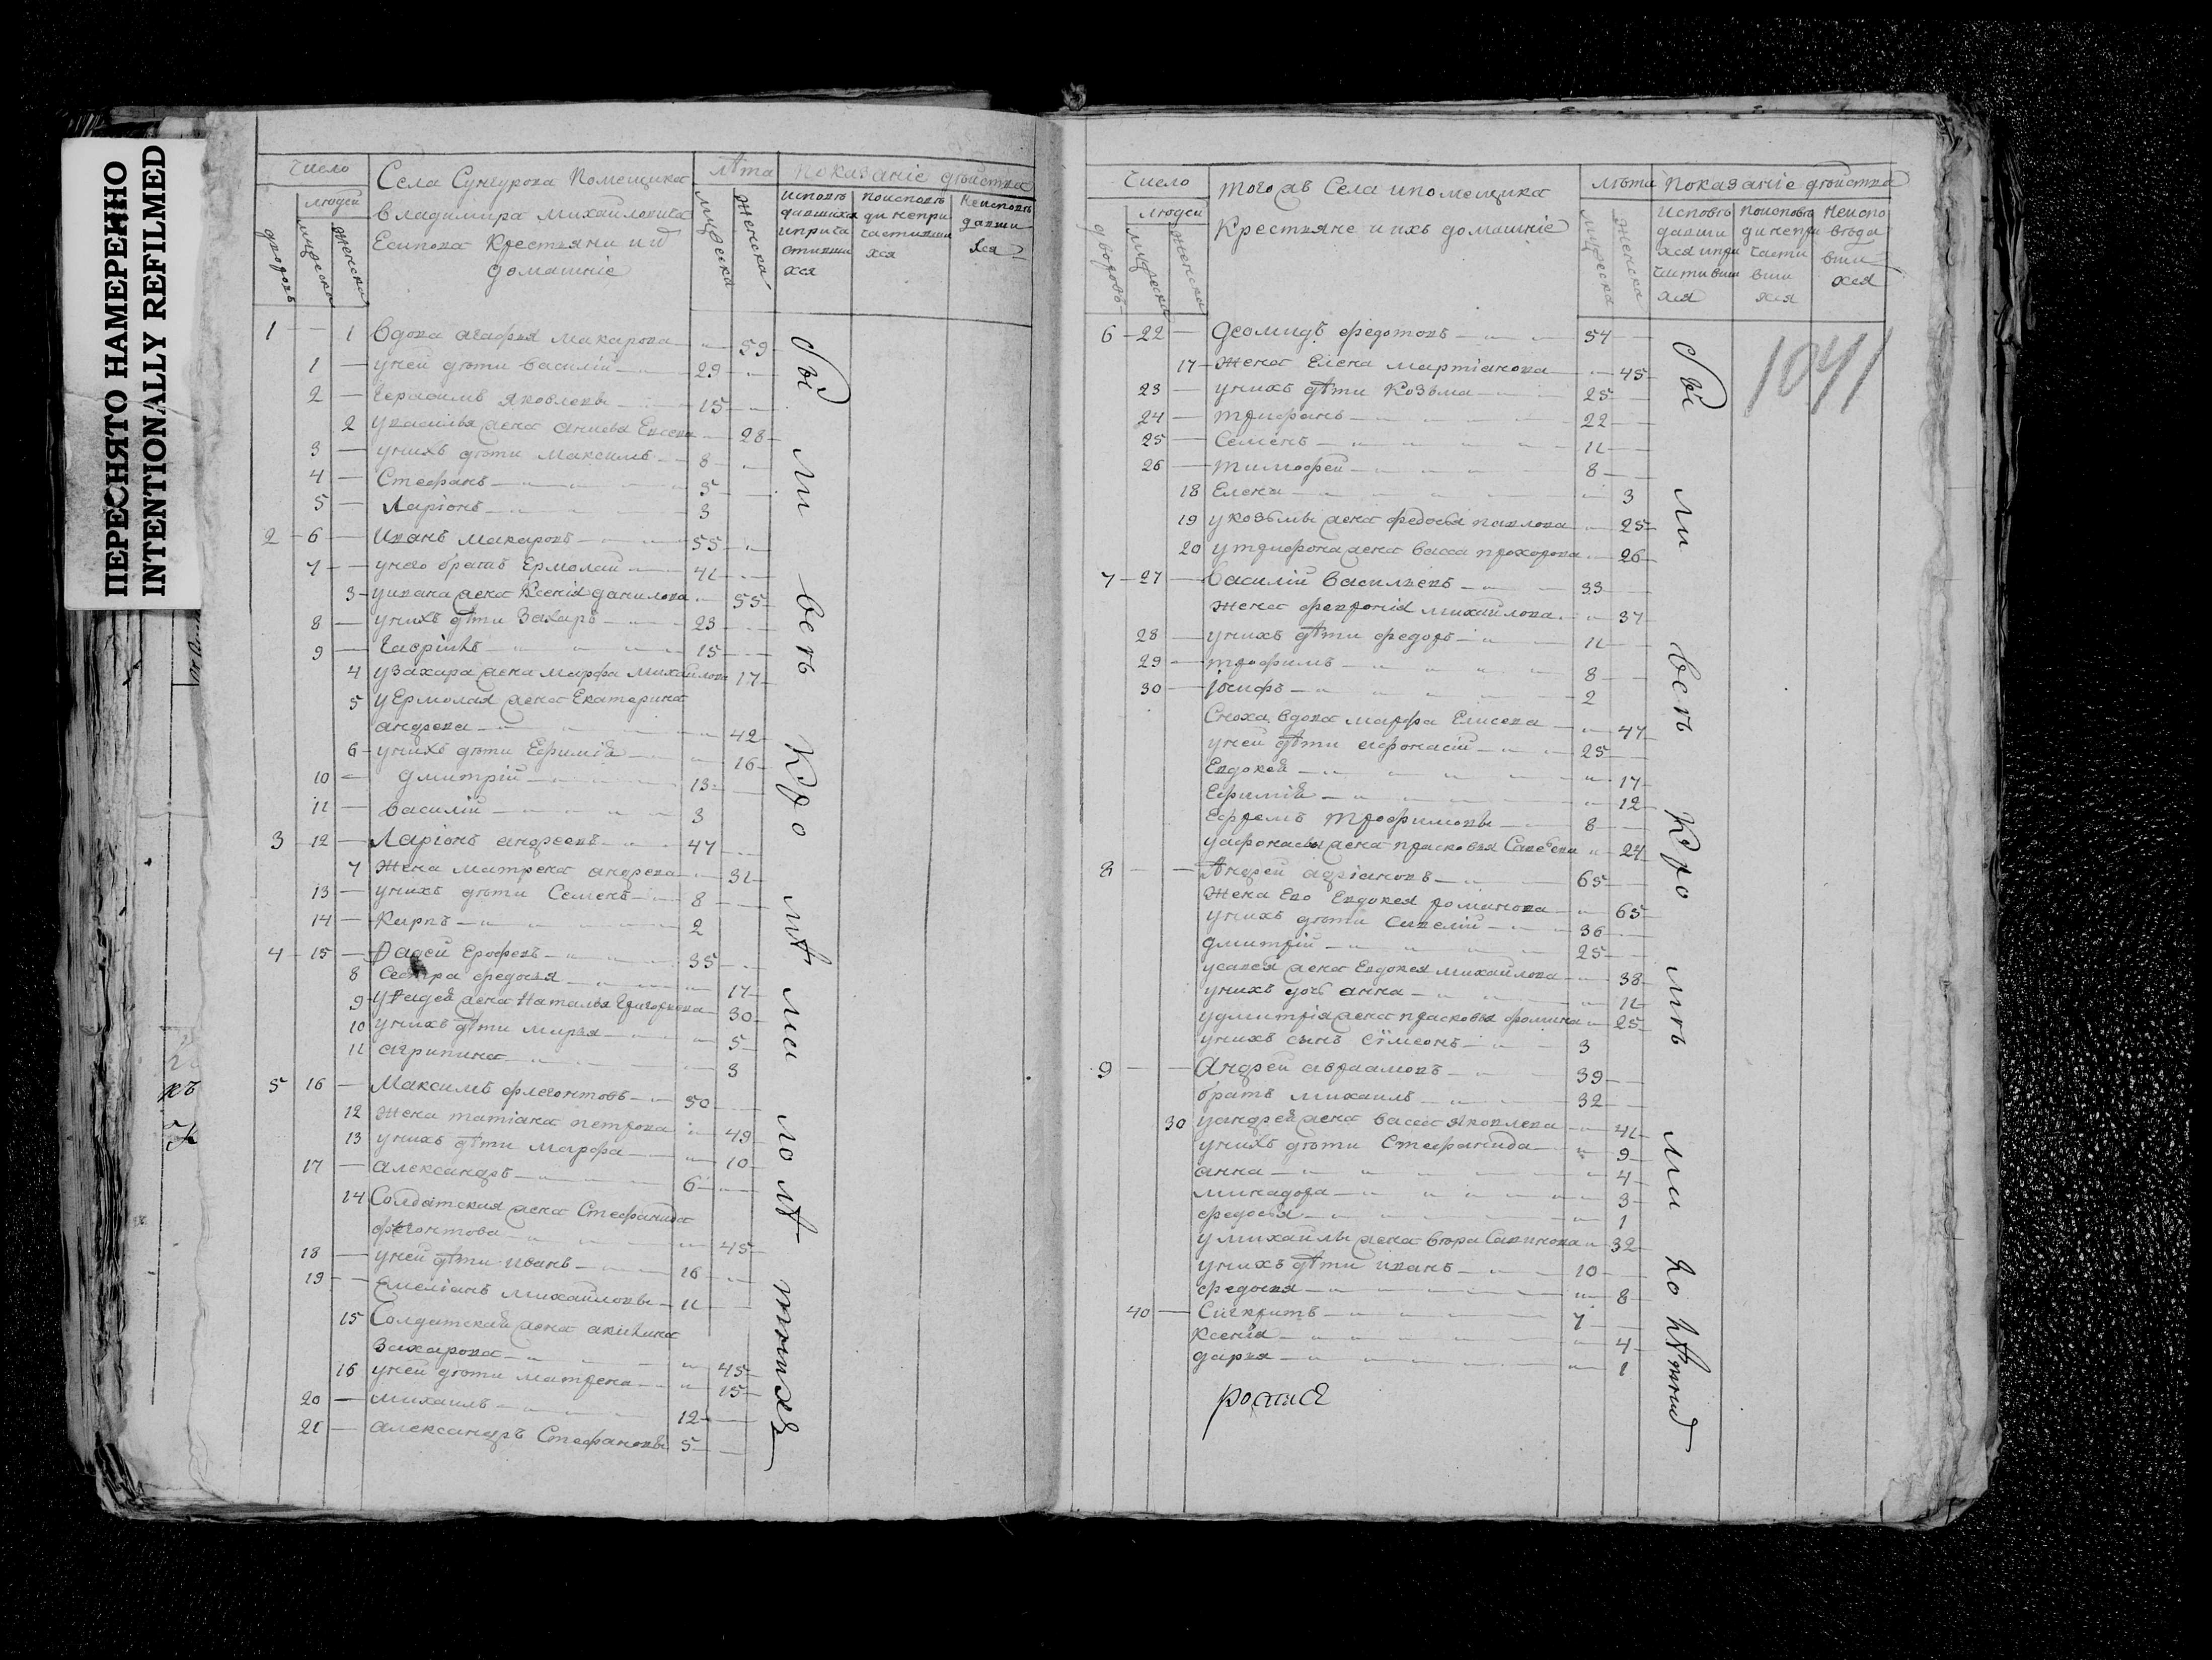 ПЕРЕСНЯТО НАМЕРЕННО
INTENTIONALLY REFILMED
число
людей
дворовъ
мужеска
женска
Села Сунгурова Помещика
владимира михайловича
Есипова Крестьяни ии
домашніе
лѣта
мужеска
женска
показаніе действа
исповѣ
давшихся
иприча
стивши
хся
поисповѣ
ди непри
частивши
хся
Неисповѣ
давши
хся
1 1 вдова агафия макарова 59
1 уней дѣти василій 29
2 герасимъ яковлевы 15
2 увасилья жена анисья Елесева 28
3 унихъ дѣти максимъ 8
4 Стефанъ 5
5 Ларіонъ 3
2 6 Иванъ макаровъ 55
7 унего братъ Ермолай 41
3 уивана жена Ксенія данилова 55
8 унихъ дѣти Захаръ 23
9 гаврилъ 15
4 узахара жена марфа михайлова 17
5 уЕрмолая жена Екатерина
андрева 42
6 унихъ дѣти Ефимія 16
10 дмитрій 13
11 василій 3
3 12 Ларіонъ андреевъ 47
7 жена матрена андрева 31
13 унихъ дѣти Семенъ 8
14 Карпъ 2
4 15 Фадей Ерофевъ 35
8 Сестра федосья 17
9 уФадея жена Наталья григорьева 30
10 унихъ дѣти марья 5
11 агрипина 3
5 16 Максимъ флегонтовъ 50
12 жена татіана петрова 49
13 унихъ дѣти марфа 10
17 александръ 6
14 Солдатская жена Стефанида
флегонтова 45
18 уней дѣти иванъ 16
19 Емеліанъ михайловы 11
15 Солдатская жена акилина
Захарова 45
16 уней дѣти матрена 15
20 михаилъ 12
21 александръ Стефановы 5
бы ли весь кро мѣ ма ло лѣ тныхъ
число
людей
дворовъ
мужеска
женска
тогожъ Села ипомещика
Крестьяне иихъ домашніе
лѣта
мужеска
женска
показаніе действа
Исповѣ
давши
хся ипри
частивши
хся
поисповѣ
ди непри
части
вши
хся
неиспо
вѣда
вши
хся
1041
6 22 Деомидъ федотовъ 54
17 жена Елена мартіанова 45
23 унихъ дѣти Козьма 25
24 трифанъ 22
25 Семенъ 11
26 тимофей 8
18 Елена 3
19 укозьмы жена федосья павлова 25
20 утрифона жена васса прохорова 26
7 27 василій васильевъ 33
жена февронія михайлова 37
28 унихъ дѣти федоръ 11
29 трофимъ 8
30 іосифъ 2
Сноха вдова марфа Елисева 47
уней дѣти афонасій 25
Евдокея 17
Ефимія 12
Ефремъ трофимовы 8
уафонасья жена прасковья Савельева 24
8 Андрей адріановъ 65
жена Ево Евдокея романова 65
унихъ дѣти савелій 36
дмитрій 25
усавел жена Евдокея михайлова 38
унихъ дочь анна 11
удмитрія жена прасковья фомина 25
унихъ сынъ сімеонъ 3
9 Андрей авраамовъ 39
братъ михаилъ 32
30 уандрея жена васса яковлева 41
унихъ дѣти Стефанида 9
анна 4
минадора 3
федосья 1
умихайлы жена вера Савинова 32
унихъ дѣти иванъ 10
федосья 8
40 7
Ксенія 4
дарья 1
бы ли весь кро мѣ ма ло лѣтныхъ